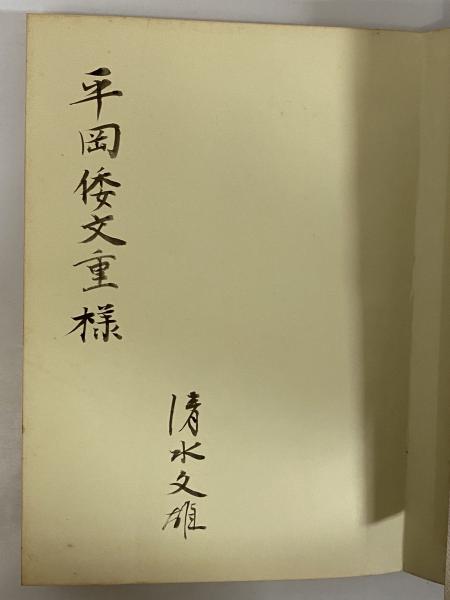 平岡倭文重様
清水文雄